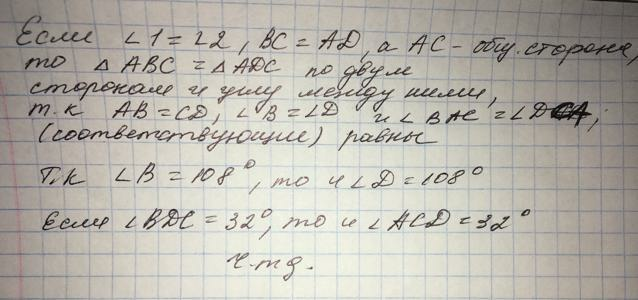 Если ∠1 = ∠2, BC = AD, а AC - общ. сторона,
то △ ABC = △ADC по двум
сторонам и углу между ними,
т.к AB = CD, ∠B = ∠D и ∠BAC = ∠DCA;
(соответствующие) равны
Т.к ∠B = 108°, то и ∠D = 108°
Если ∠BDC = 32°, то и ∠ACD = 32°
ч.т.д.